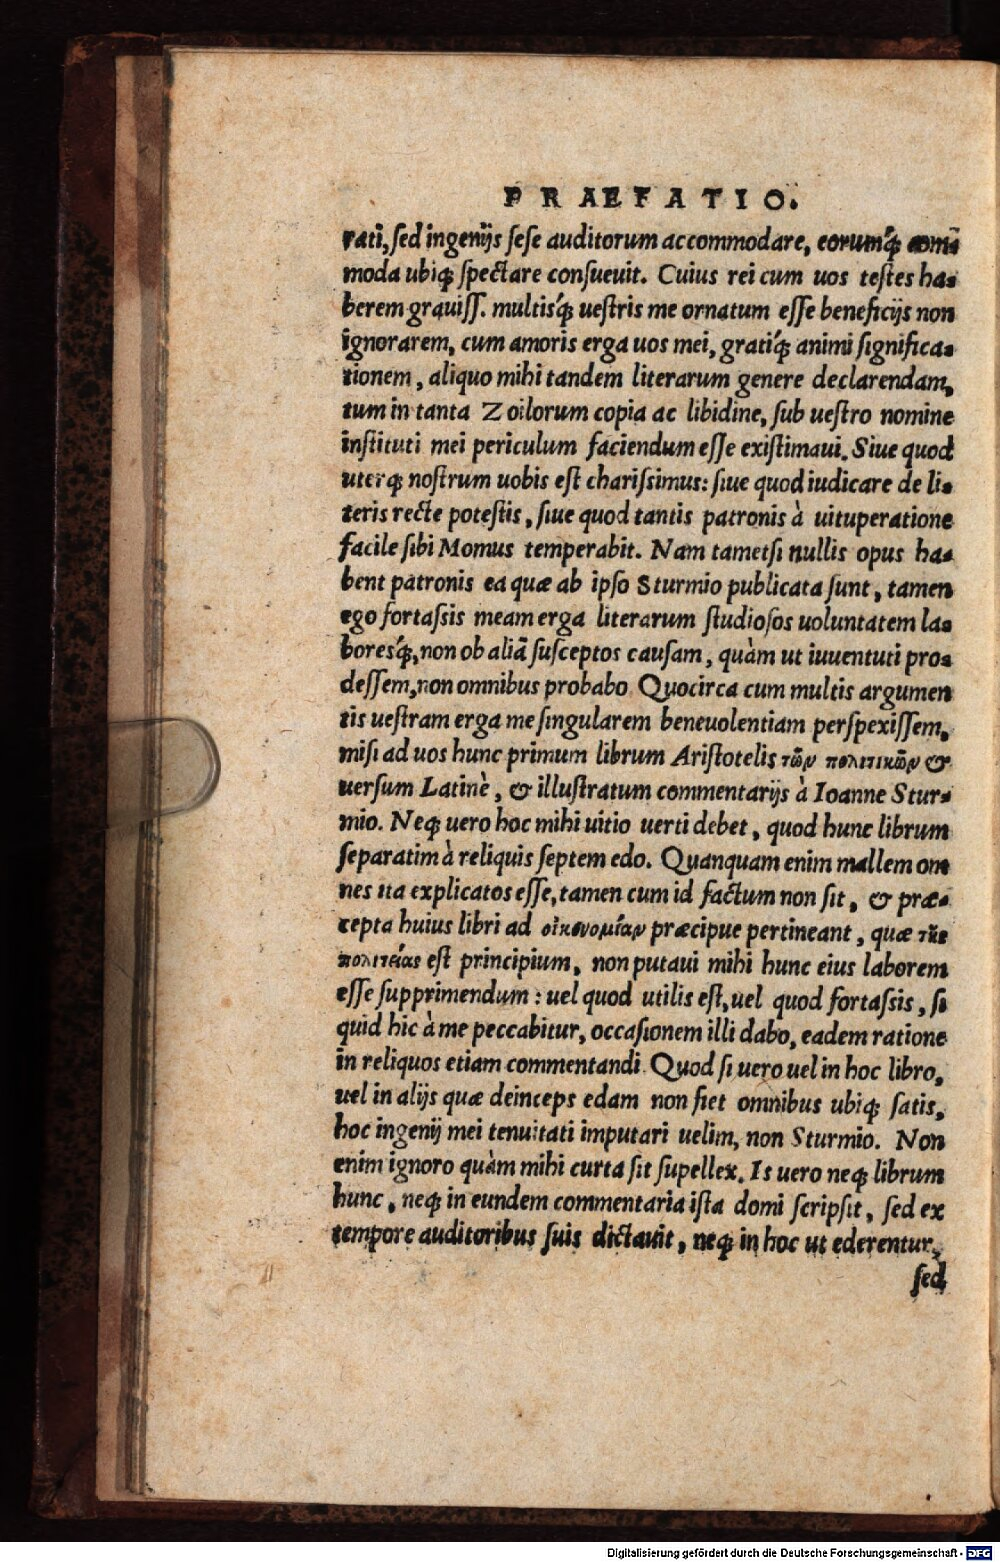 PRAEFATIO.
rati, sed ingenijs sese auditorum accommodare, eorumq́; com̄
moda ubiq; spectare consueuit. Cuius rei cum uos testes ha-
berem grauiss. multisq́; uestris me ornatum esse beneficijs non
ignorarem, cum amoris erga uos mei, gratiq́; animi significa-
tionem, aliquo mihi tandem literarum genere declarendam,
tum in tanta Zoilorum copia ac libidine, sub uestro nomine
instituti mei periculum faciendum esse existimaui. Siue quod
uterq; nostrum uobis est charissimus: siue quod iudicare de li-
teris recte potestis, siue quod tantis patronis à uituperatione
facile sibi Momus temperabit. Nam tametsi nullis opus ha-
bent patronis ea quæ ab ipso Sturmio publicata sunt, tamen
ego fortassis meam erga literarum studiosos uoluntatem la-
boresq́;, non ob aliā susceptos causam, quàm ut iuuentuti pro-
dessem, non omnibus probabo. Quocirca cum multis argumen
tis uestram erga me singularem beneuolentiam perspexissem,
misi ad uos hunc primum librum Aristotelis τῶν πολιτικῶν &
uersum Latinè, & illustratum commentarijs à Ioanne Stur-
mio. Neq; uero hoc mihi uitio uerti debet, quod hunc librum
separatim à reliquis septem edo. Quanquam enim mallem om
nes ita explicatos esse, tamen cum id factum non sit, & præ-
cepta huius libri ad οἰκονομίαν præcipue pertineant, quæ τῆς
πολιτείας est principium, non putaui mihi hunc eius laborem
esse supprimendum: uel quod utilis est, uel quod fortassis, si
quid hic à me peccabitur, occasionem illi dabo, eadem ratione
in reliquos etiam commentandi. Quod si uero uel in hoc libro,
uel in alijs quæ deinceps edam non fiet omnibus ubiq; satis,
hoc ingenij mei tenuitati imputari uelim, non Sturmio. Non
enim ignoro quàm mihi curta sit supellex. Is uero neq; librum
hunc, neq; in eundem commentaria ista domi scripsit, sed ex
tempore auditoribus suis dictauit, neq; in hoc ut ederentur,
sed
Digitalisierung gefördert durch die Deutsche Forschungsgemeinschaft - DFG